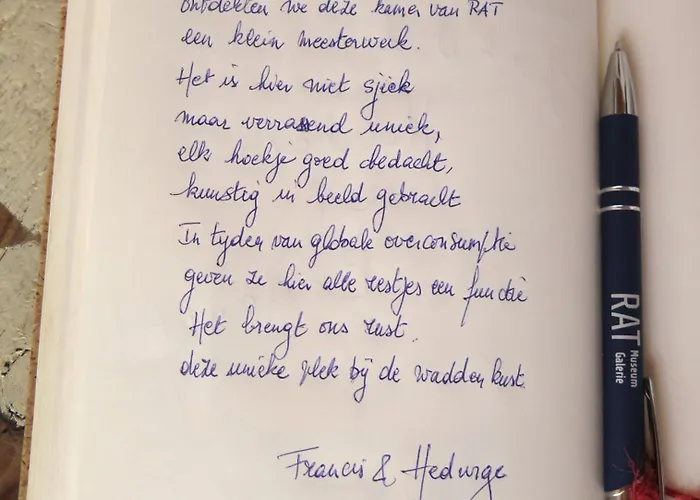 ontdekten we deze kamer van RAT
een klein meesterwerk.
Het is hier niet sjiek
maar verrassend uniek,
elk hoekje goed bedacht,
kunstig in beeld gebracht
In tijden van globale overconsumptie
geven ze hier alle restjes een functie
Het brengt ons rust.
deze unieke plek bij de wadden kust.
Francis & Hedwige
RAT Museum
Galerie